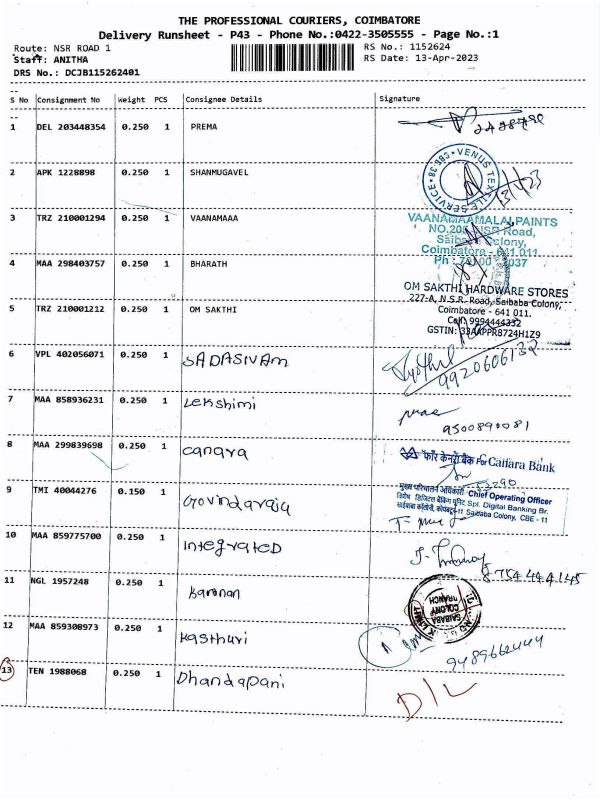 THE PROFESSIONAL COURIERS, COIMBATORE
Delivery Runsheet - P43 - Phone No.:0422-3505555 - Page No.:1
Route: NSR ROAD 1
RS No.: 1152624
Staff: ANITHA
RS Date: 13-Apr-2023
DRS No.: DCJB115262401
S No Consignment No Weight PCS Consignee Details Signature
1 DEL 203448354 0.250 1 PREMA
2 APK 1228898 0.250 1 SHANMUGAVEL
VENUS TEXTILE SERVICE CBE-38
3 TRZ 210001294 0.250 1 VAANAMAAA
VAANAMAAMALAI PAINTS
NSR Road,
Saibaba Colony,
Coimbatore - 641 011
4 MAA 298403757 0.250 1 BHARATH
OM SAKTHI HARDWARE STORES
227-A, N.S.R. Road, Saibaba Colony,
Coimbatore - 641 011.
Cell: 9994444332
5 TRZ 210001212 0.250 1 OM SAKTHI
6 VPL 402056071 0.250 1 SADASIVAM
9920606132
7 MAA 858936231 0.250 1 Lekshimi
9500890081
8 MAA 299839698 0.250 1 canara
कृते केनरा बैंक For Canara Bank
मुख्य परिचालन अधिकारी Chief Operating Officer
Spl. Digital Banking Br.
Saibaba Colony, CBE - 11
9 TMI 40044276 0.150 1 Govindaraju
10 MAA 859775700 0.250 1 Integrated
8754444145
11 NGL 1957248 0.250 1 Kannan
SAIBABA
COLONY
BRANCH
12 MAA 859308973 0.250 1 Kasthuri
9489662444
13 TEN 1988068 0.250 1 Dhandapani
D/L